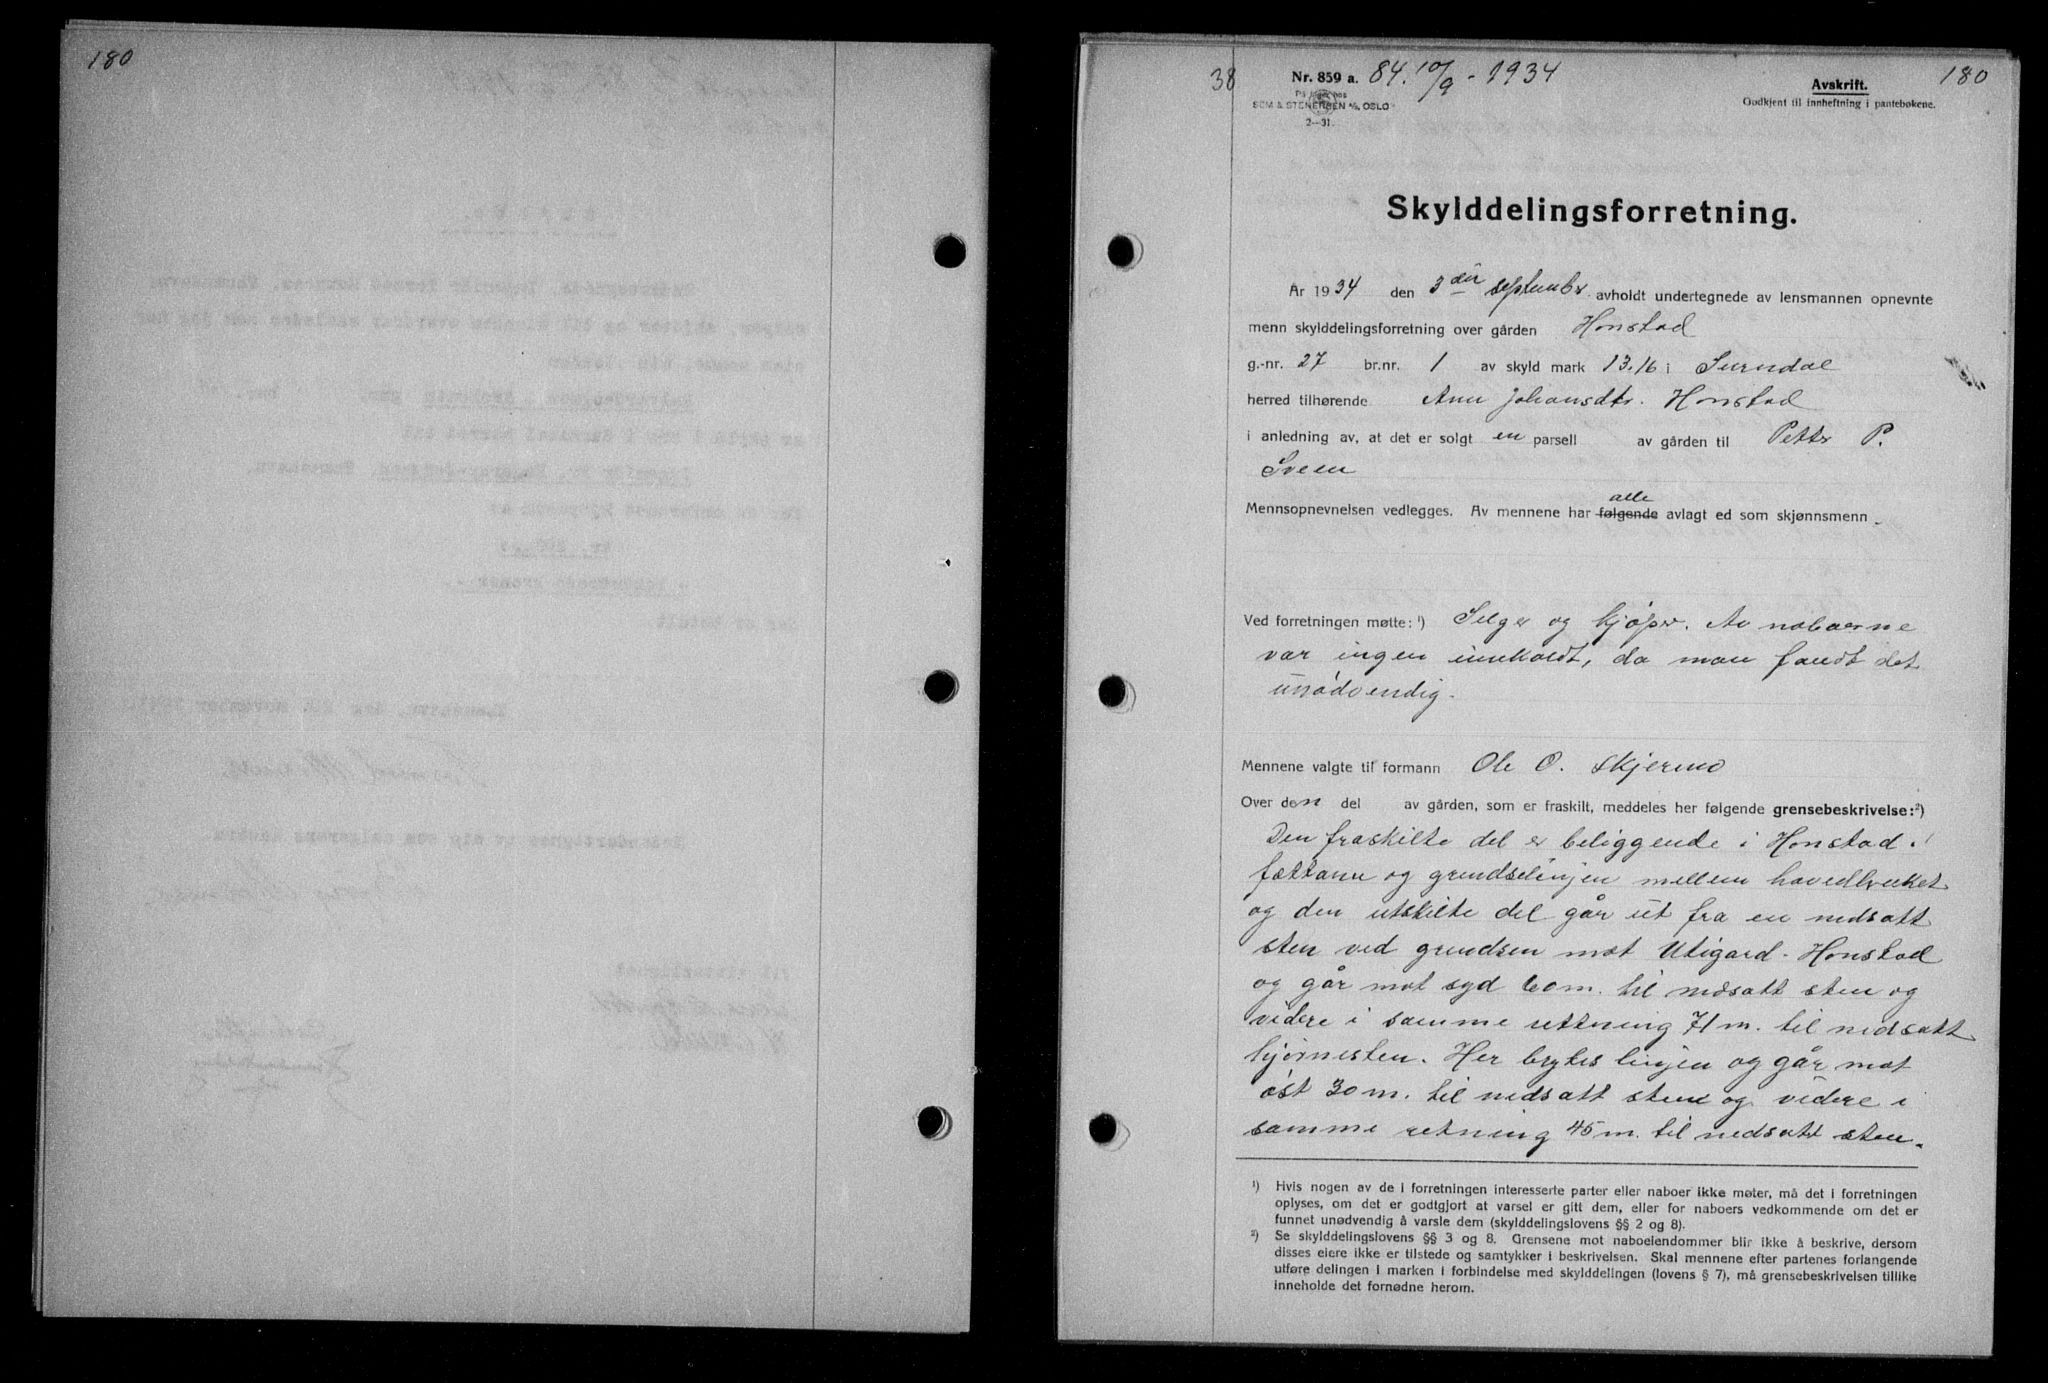 180
38 Nr. 859 a. 84. 10/9 - 1934 Avskrift. 180
På lager hos
SEM & STENERSEN A/S, OSLO
2—31.
Godkjent til innheftning i pantebøkene.
Skylddelingsforretning.
År 1934 den 3die september avholdt undertegnede av lensmannen opnevnte
menn skylddelingsforretning over gården Honstad
g.-nr. 27 br.nr. 1 av skyld mark 13.16 i Surndal
herred tilhørende Ane Johansdtr. Honstad
i anledning av, at det er solgt en parsell av gården til Petter P.
Sveen
alle
Mennsopnevnelsen vedlegges. Av mennene har følgende avlagt ed som skjønnsmenn.
Ved forretningen møtte: ¹) Selger og kjøper. Av naboerne
var ingen innkaldt, da man fandt det
unødvendig.
Mennene valgte til formann Ole O. Skjermo
Over den del av gården, som er fraskilt, meddeles her følgende grensebeskrivelse: ²)
Den fraskilte del er beliggende i Honstad.
og grendselinjen mellem hovedbruket
og den utskilte del går ut fra en nedsatt
sten ved grendsen mot Utigard - Honstad
og går mot syd 60 m. til nedsatt sten og
videre i samme rettning 71 m. til nedsatt
hjørnesten. Her brytes linjen og går mot
øst 30 m. til nedsatt sten og videre i
samme retning 45 m. til nedsatt sten.
¹) Hvis nogen av de i forretningen interesserte parter eller naboer ikke møter, må det i forretningen
oplyses, om det er godtgjort at varsel er gitt dem, eller for naboers vedkommende om det er
funnet unødvendig å varsle dem (skylddelingslovens §§ 2 og 8).
²) Se skylddelingslovens §§ 3 og 8. Grensene mot naboeiendommer blir ikke å beskrive, dersom
disses eiere ikke er tilstede og samtykker i beskrivelsen. Skal mennene efter partenes forlangende
utføre delingen i marken i forbindelse med skylddelingen (lovens § 7), må grensebeskrivelsen tillike
inneholde det fornødne herom.